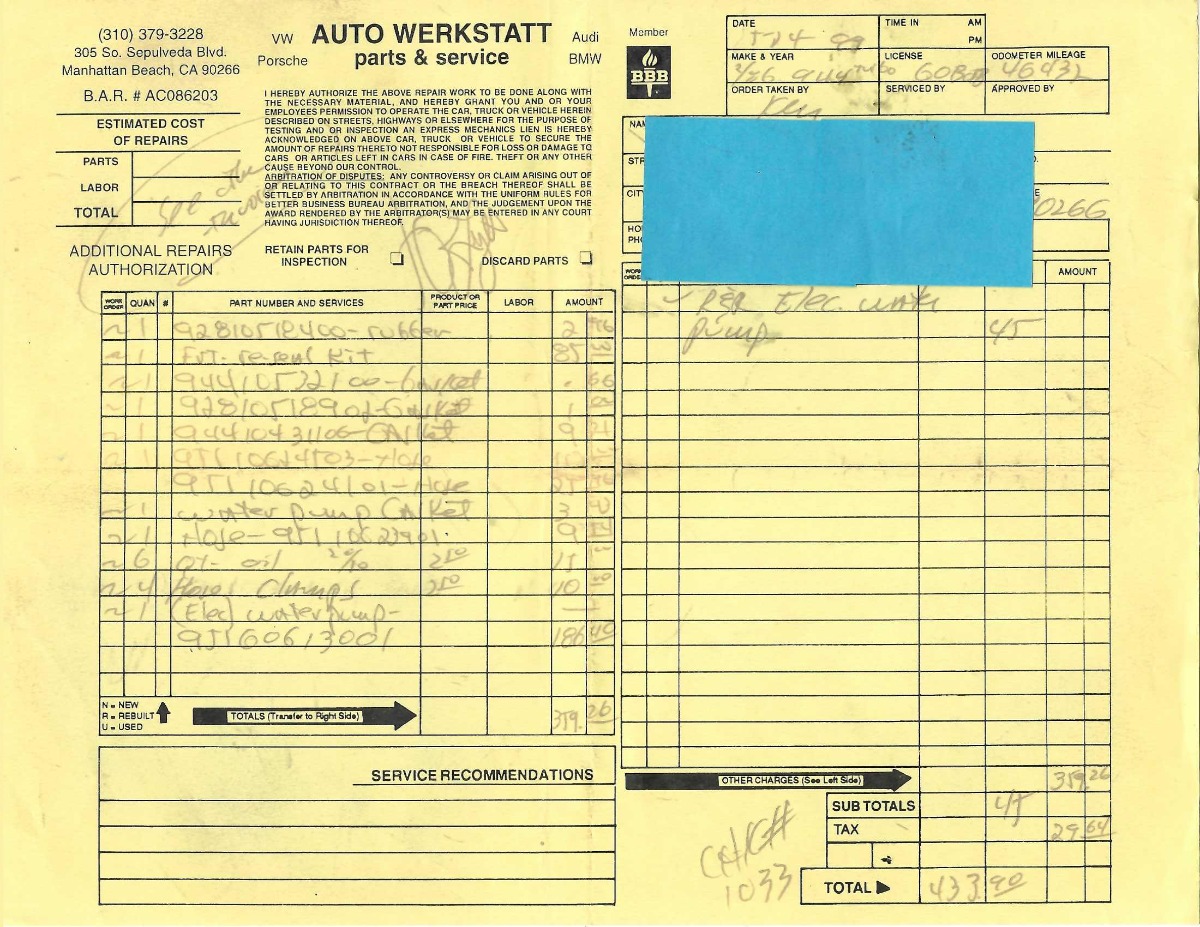 (310) 379-3228
305 So. Sepulveda Blvd.
Manhattan Beach, CA 90266
B.A.R. # AC086203
VW
Porsche
AUTO WERKSTATT
parts & service
Audi
BMW
Member
BBB
DATE
TIME IN
AM
PM
MAKE & YEAR
LICENSE
ODOMETER MILEAGE
46432
ORDER TAKEN BY
SERVICED BY
APPROVED BY
Ken
ESTIMATED COST
OF REPAIRS
PARTS
LABOR
TOTAL
see the
I HEREBY AUTHORIZE THE ABOVE REPAIR WORK TO BE DONE ALONG WITH
THE NECESSARY MATERIAL, AND HEREBY GRANT YOU AND OR YOUR
EMPLOYEES PERMISSION TO OPERATE THE CAR, TRUCK OR VEHICLE HEREIN
DESCRIBED ON STREETS, HIGHWAYS OR ELSEWHERE FOR THE PURPOSE OF
TESTING AND OR INSPECTION AN EXPRESS MECHANICS LIEN IS HEREBY
ACKNOWLEDGED ON ABOVE CAR, TRUCK OR VEHICLE TO SECURE THE
AMOUNT OF REPAIRS THERETO NOT RESPONSIBLE FOR LOSS OR DAMAGE TO
CARS OR ARTICLES LEFT IN CARS IN CASE OF FIRE. THEFT OR ANY OTHER
CAUSE BEYOND OUR CONTROL.
ARBITRATION OF DISPUTES: ANY CONTROVERSY OR CLAIM ARISING OUT OF
OR RELATING TO THIS CONTRACT OR THE BREACH THEREOF SHALL BE
SETTLED BY ARBITRATION IN ACCORDANCE WITH THE UNIFORM RULES FOR
BETTER BUSINESS BUREAU ARBITRATION, AND THE JUDGEMENT UPON THE
AWARD RENDERED BY THE ARBITRATOR(S) MAY BE ENTERED IN ANY COURT
HAVING JUHISDICTION THEREOF.
0266
ADDITIONAL REPAIRS
AUTHORIZATION
RETAIN PARTS FOR
INSPECTION
DISCARD PARTS
WORK ORDER QUAN # PART NUMBER AND SERVICES PRODUCT OR PART PRICE LABOR AMOUNT
~ 1 92810518400-rubber 2
~ 1 Frt. reseal Kit 85
~ 1 94410532100-Gasket . 66
~ 1 92810518902-Gasket 1
~ 1 94410431106-GAsket 9 21
~ 1 95110624503-Hose
95110624101-Hose
~ 1 water pump GAsket 3
~ 1 Hose-95110623901
~ 6 QT- oil 20/50 2 50 15
~ 4 Hose Clamps 2 50 10 00
~ 1 (Elec) water pump-
95160613001 186 40
N = NEW
R = REBUILT
U = USED
TOTALS (Transfer to Right Side)
359. 26
SERVICE RECOMMENDATIONS
AMOUNT
R&R Elec. water
pump 45
OTHER CHARGES (See Left Side) 359. 26
SUB TOTALS 45
TAX 29 64
TOTAL 433. 90
CHK#
1033